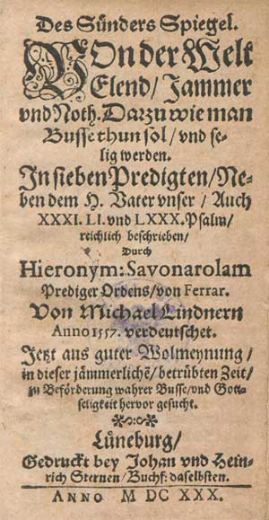 Des Sünders Spiegel.
Von der Welt
Elend / Jammer
vnd Noth. Darzu wie man
Busse thun sol / vnd se-
lig werden.
In sieben Predigten / Ne-
ben dem H. Vater vnser / Auch
XXXI. LI. vnd LXXX. Psalm /
reichlich beschrieben /
Durch
Hieronym: Savonarolam
Prediger Ordens / von Ferrar.
Von Michael Lindnern
Anno 1557. verdeutschet.
Jetzt aus guter Wolmeynung /
in dieser jämmerlichē / betrübten Zeit /
zu Beförderung wahrer Busse / vnd Gott-
seligkeit hervor gesucht.
Lüneburg /
Gedruckt bey Johan vnd Hein-
rich Sternen / Buchf: daselbsten.
ANNO M DC XXX.